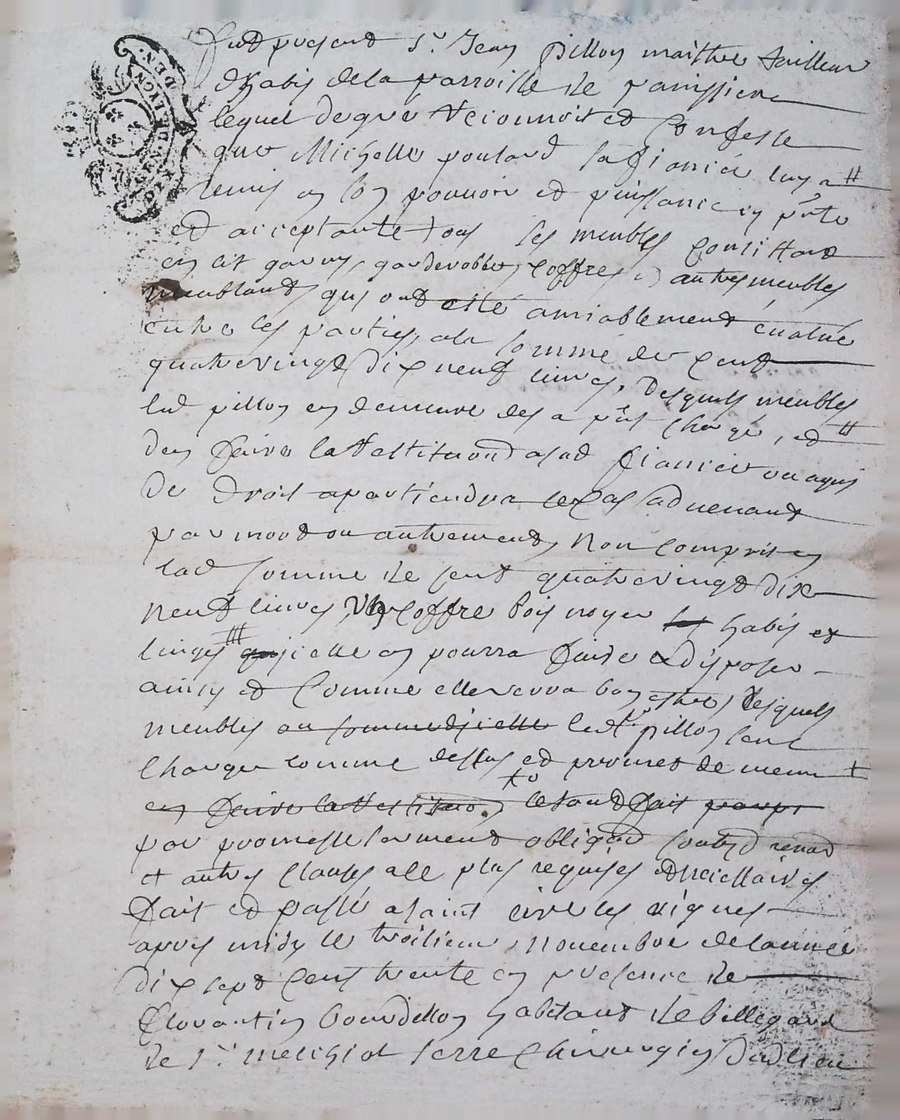 DEN. DE LYON
fut present Sr. Jean pillon maistre tailleur
dhabis de la parroisse de panissiere
lequel de gre reconnoist et confesse
que Michelle poulard sa fiancée luy a
remis en son pouvoir et puissance cy pnte
et acceptante tous ses meubles consistant
en garderobbe, coffres et autres meubles
meublants qui ont esté amiablement évalué
entre les parties, a la somme de cent
quatrevingt dix neuf livres, desquels meubles
led pillon en demeure des a pnt chargé, et
den faire la restitution a sad fiancée ou a qui
de droit apartiendra le cas advenant
par mort ou autrement, Non compris en
lad somme de cent quatrevingt dix
neuf livres, un coffre bois noyer habis et
linges icelle en pourra faire & disposer
ainsy et comme elle verra bon estre, desquels
meubles ou somme dicelle led Sr pillon sent
charge comme dessus et promet de
en faire la restitution le tout fait
par promesse serment obligaon
et autres clauses a ce plus requises & necessaires
fait et passé a saint cire les vignes
apres midy le troisieme novembre de lannée
dix sept cent trente en presence de
florantin bourdellon habitant de bellegarde
de Sr. melchiot serre chirurgien dud lieu